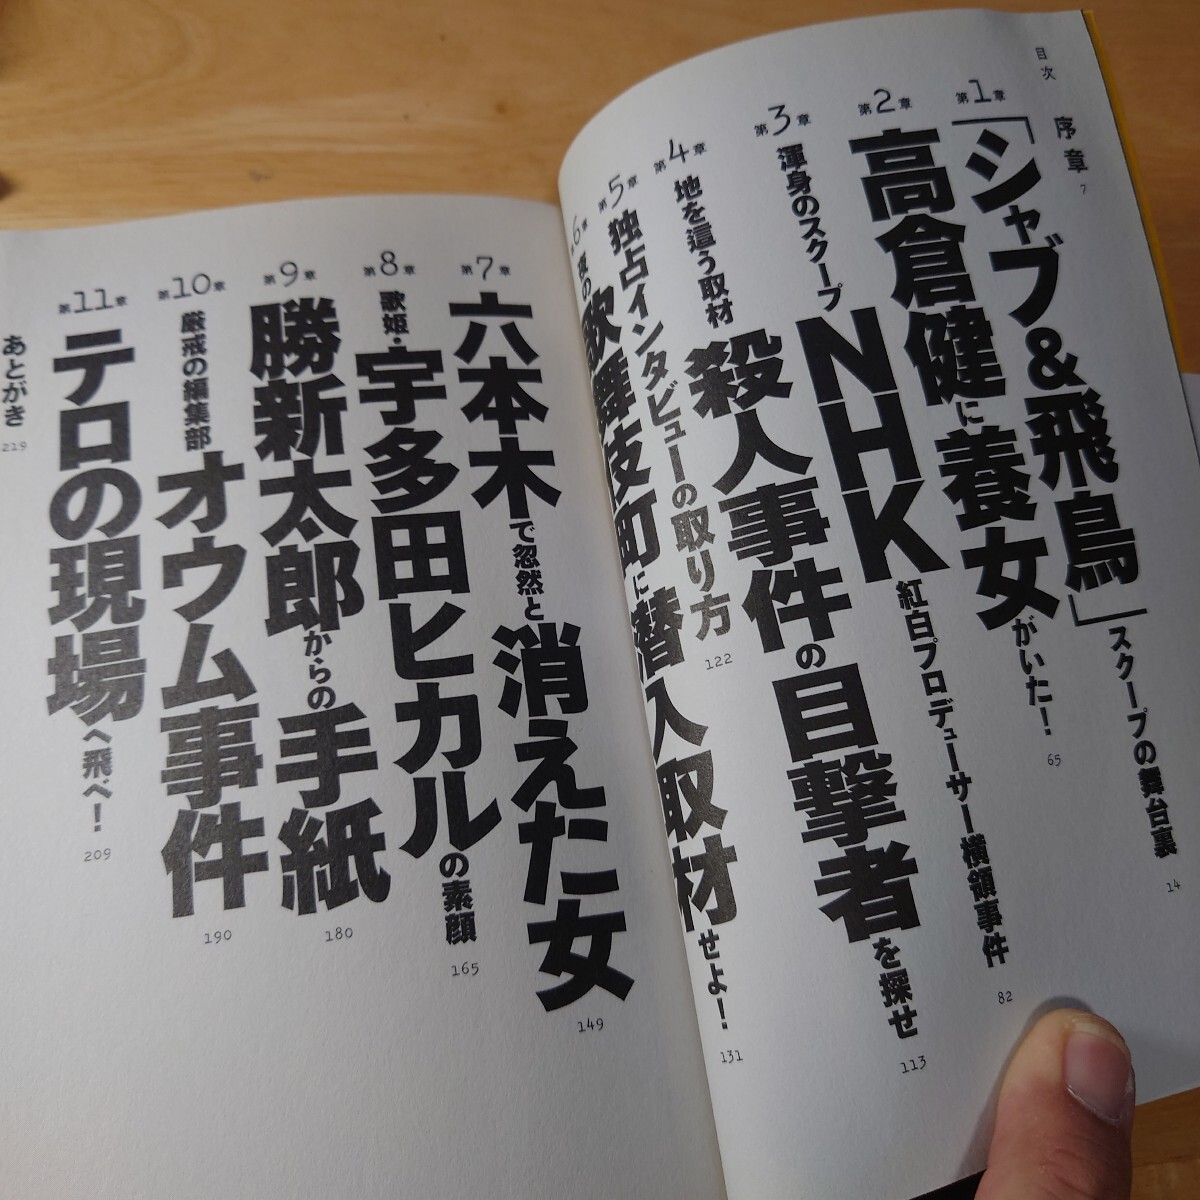 目次
序章 7
第1章 「シャブ&飛鳥」スクープの舞台裏 14
第2章 高倉健に養女がいた! 65
第3章 渾身のスクープ NHK紅白プロデューサー横領事件 82
第4章 地を這う取材 殺人事件の目撃者を探せ 113
第5章 独占インタビューの取り方 122
第6章 夜の歌舞伎町に潜入取材せよ! 131
第7章 六本木で忽然と消えた女 149
第8章 歌姫・宇多田ヒカルの素顔 165
第9章 勝新太郎からの手紙 180
第10章 厳戒の編集部 オウム事件 190
第11章 テロの現場へ飛べ! 209
あとがき 219